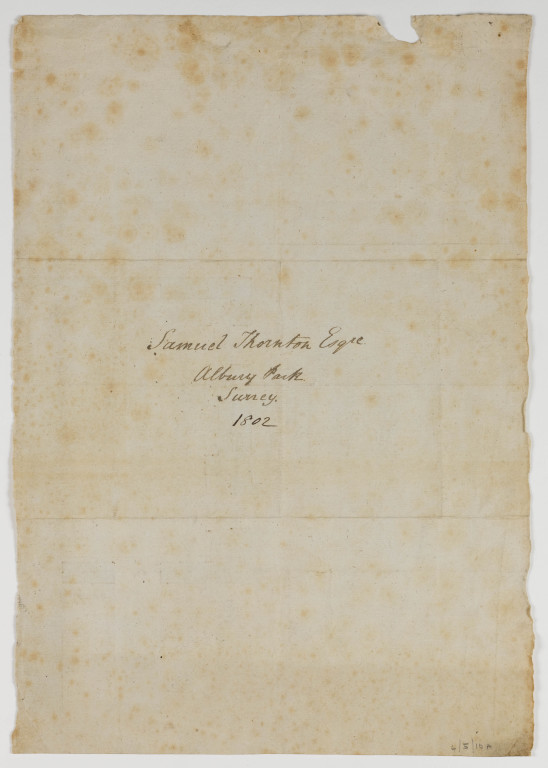 Samuel Thornton Esqre
Albury Park
Surrey.
1802